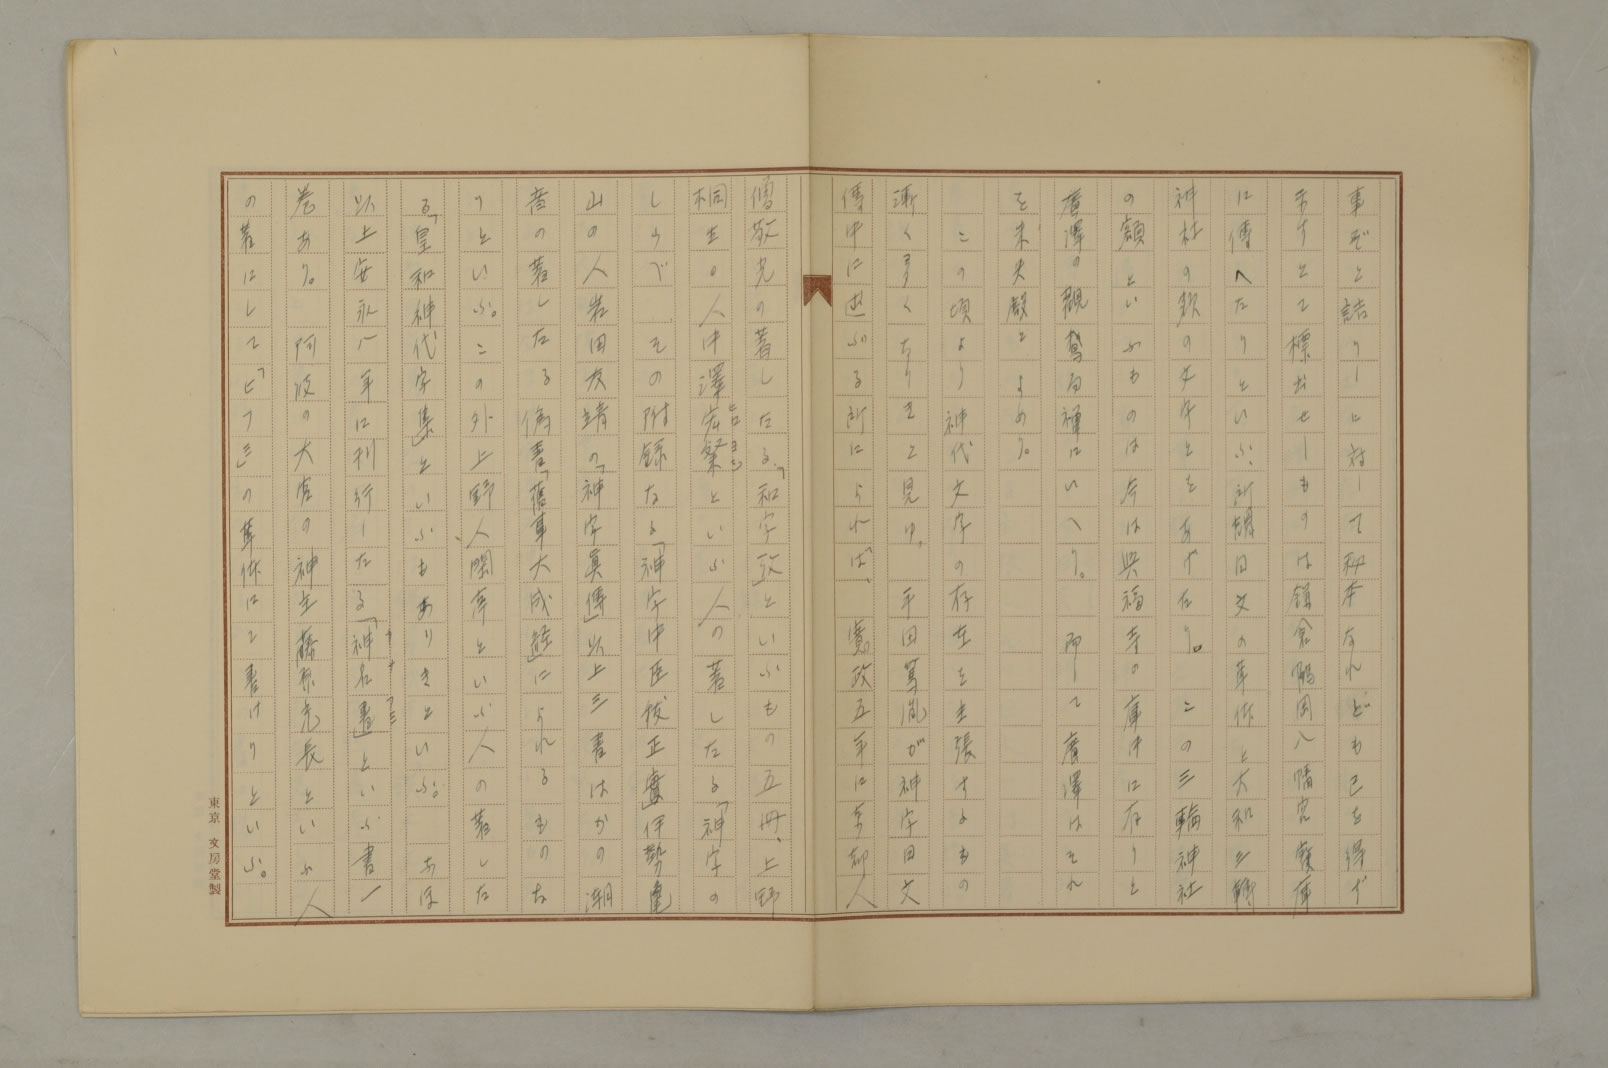 事ぞと詰りしに対して秘本なれども已を得ず
ますとて標出せしものは鎌倉鶴岡八幡宮寳庫
に傳へたりといふ、所謂日文の草体と大和三輪
神社の額の文字とをあげたり。この三輪神社
の額といふものは今は興福寺の庫中に存りと
廣澤の觀鵞百譚にいへり。而して廣澤はそれ
を未央殿とよめり。
この頃より神代文字の存在を主張するもの
漸く多くなりきと見ゆ。平田篤胤が神字日文
傳中に述ぶる所によれば、寛政五年に京都人
敬光の著したる「和字攷」といふもの五冊、上野
桐生の人中澤といふ人の著したる「神字の
しらべその附録なる「神字中臣祓正實」伊勢亀
山の人岩田友靖の「神字眞傳」以上三書はかの潮
音の著したる偽書「舊事大成經」によれるものな
りといふ。この外上野人関幸といふ人の著した
る「皇和神代字集」といふもありきといふ。なほ
以上安永八年に刊行したる「神名書」といふ書一
巻あり。阿波の大宮の神主藤原充長といふ人
の著にして「ヒフミ」の草体にて書けりといふ。
東京 文房堂製